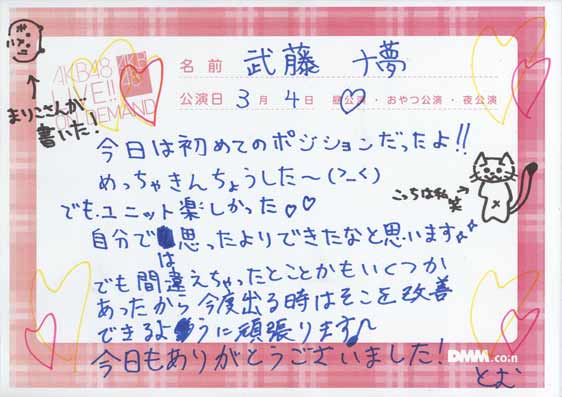 AKB48
LIVE!!
ON DEMAND
AKB
48
名前 武藤 十夢
公演日 3月4日 昼公演・おやつ公演・夜公演
まりこさんが
書いた!
今日は初めてのポジションだったよ!!
めっちゃきんちょうした〜(>_<)
でもユニット楽しかった♡♡
こっちは私
笑
自分では思ったよりできたなと思います♪
でも間違えちゃったとことかもいくつか
あったから今度出る時はそこを改善
できるように頑張ります♪
今日もありがとうございました!
DMM.co.jp
とむ